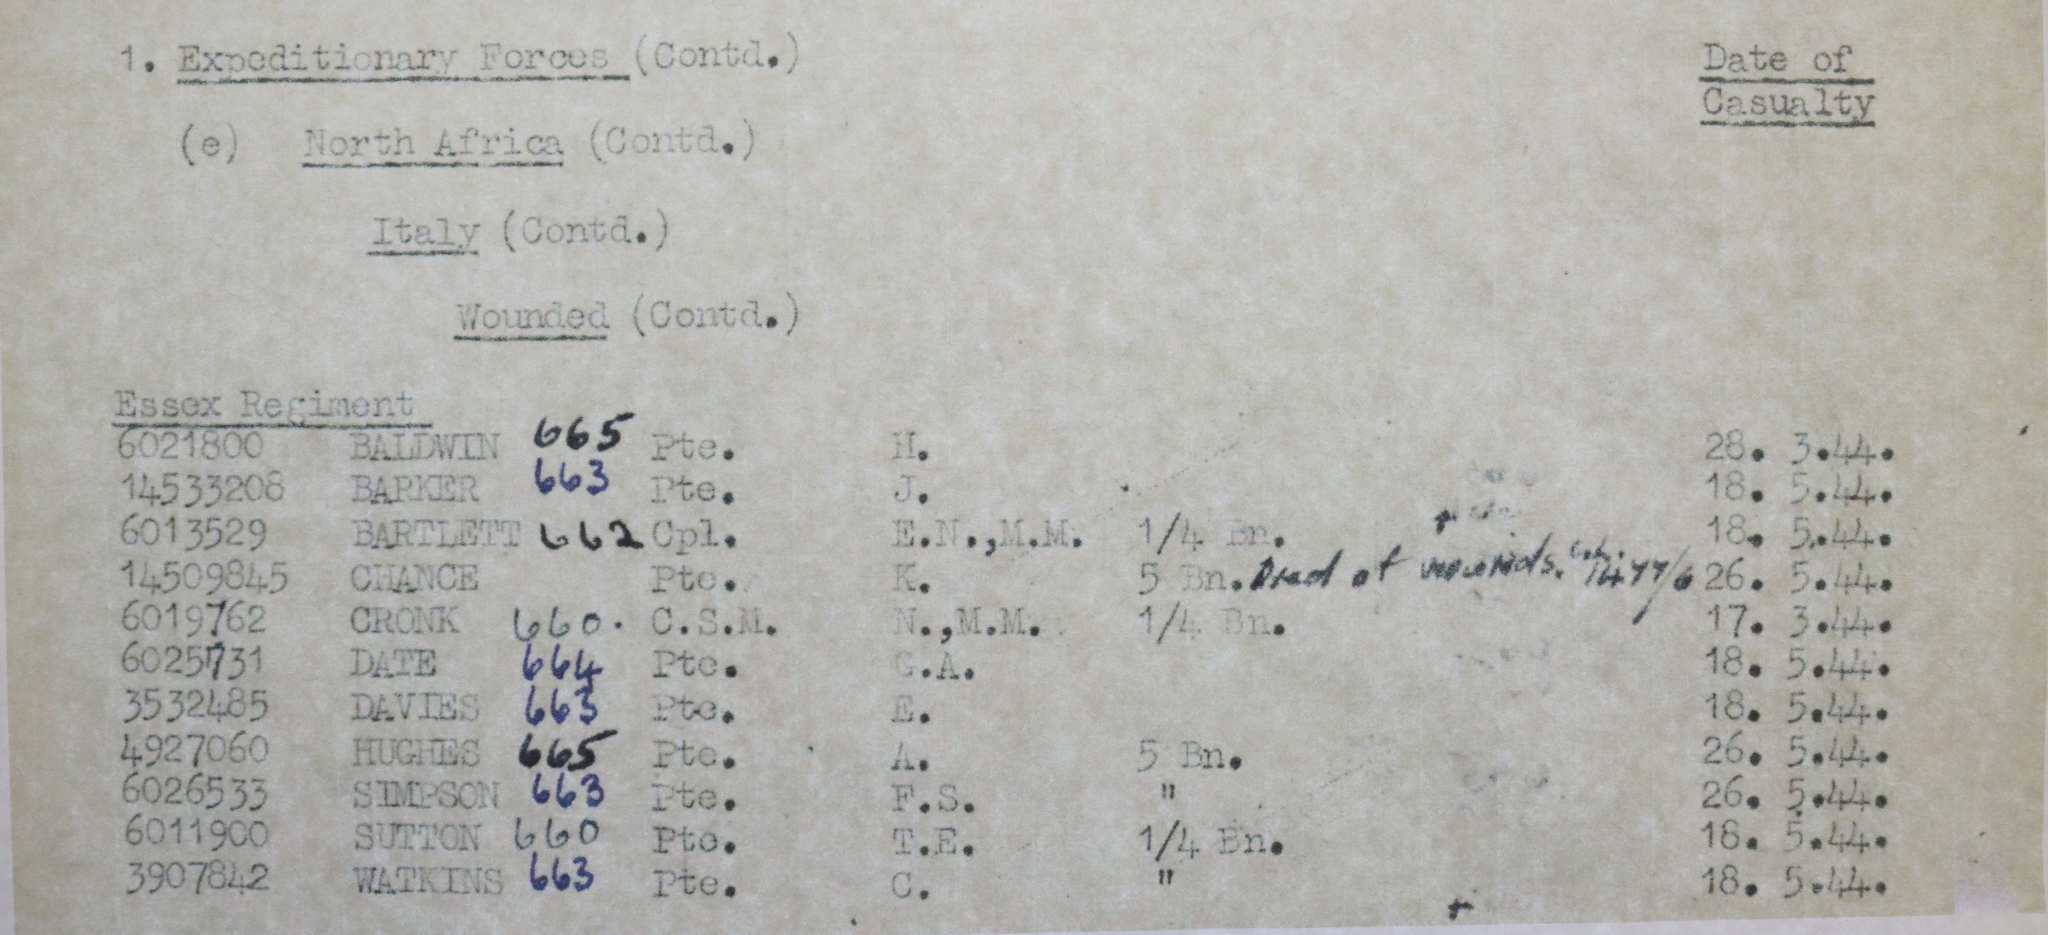 1. Expeditionary Forces (Contd.) Date of
Casualty
(e) North Africa (Contd.)
Italy (Contd.)
Wounded (Contd.)
Essex Regiment
6021800 BALDWIN 665 Pte. H. 28. 3.44.
14533208 BARKER 663 Pte. J. 18. 5.44.
6013529 BARTLETT 662 Cpl. E.N.,M.M. 1/4 Bn. 18. 5.44.
14509845 CHANCE Pte. K. 5 Bn. Died of wounds. C.L. 1477/6 26. 5.44.
6019762 CRONK 660. C.S.M. N.,M.M. 1/4 Bn. 17. 3.44.
6025731 DATE 664 Pte. G.A. 18. 5.44.
3532485 DAVIES 663 Pte. E. 18. 5.44.
4927060 HUGHES 665 Pte. A. 5 Bn. 26. 5.44.
6026533 SIMPSON 663 Pte. F.S. " 26. 5.44.
6011900 SUTTON 660 Pte. T.E. 1/4 Bn. 18. 5.44.
3907842 WATKINS 663 Pte. C. " 18. 5.44.